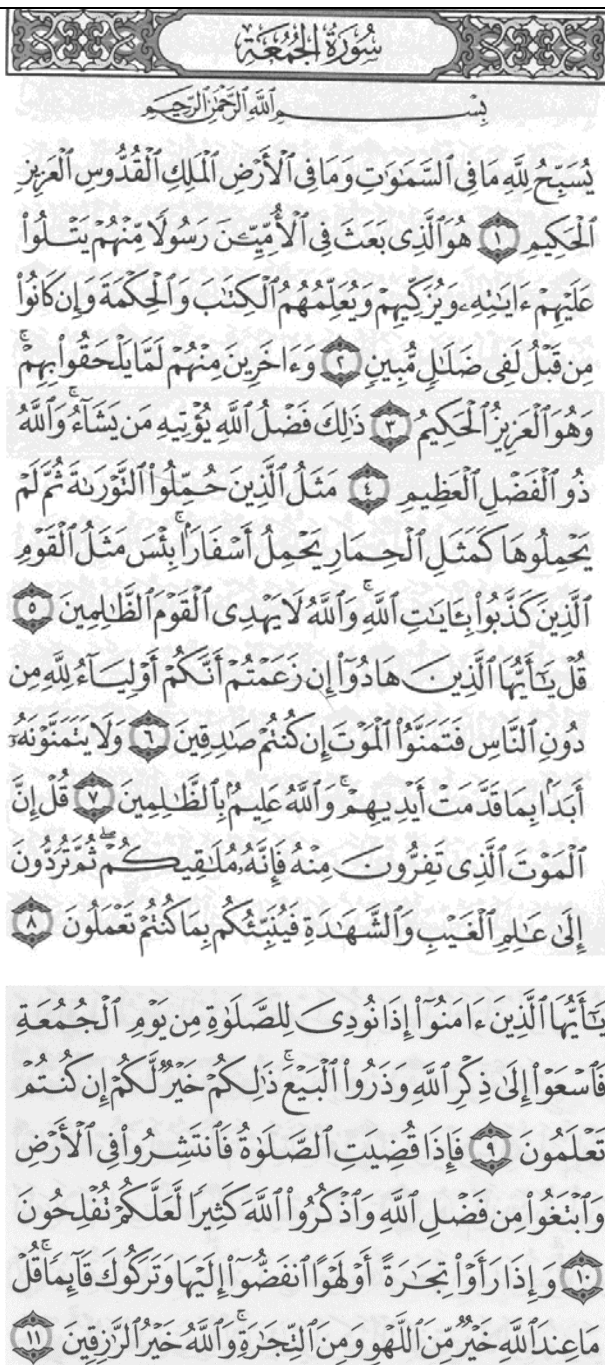 سُورَةُ الجُمُعَةِ
بِسْمِ ٱللَّهِ ٱلرَّحْمَٰنِ ٱلرَّحِيمِ
يُسَبِّحُ لِلَّهِ مَا فِي ٱلسَّمَٰوَٰتِ وَمَا فِي ٱلْأَرْضِ ٱلْمَلِكِ ٱلْقُدُّوسِ ٱلْعَزِيزِ
ٱلْحَكِيمِ ١ هُوَ ٱلَّذِي بَعَثَ فِي ٱلْأُمِّيِّـۧنَ رَسُولًا مِّنْهُمْ يَتْلُوا۟
عَلَيْهِمْ ءَايَٰتِهِۦ وَيُزَكِّيهِمْ وَيُعَلِّمُهُمُ ٱلْكِتَٰبَ وَٱلْحِكْمَةَ وَإِن كَانُوا۟
مِن قَبْلُ لَفِي ضَلَٰلٍ مُّبِينٍ ٢ وَءَاخَرِينَ مِنْهُمْ لَمَّا يَلْحَقُوا۟ بِهِمْ ۚ
وَهُوَ ٱلْعَزِيزُ ٱلْحَكِيمُ ٣ ذَٰلِكَ فَضْلُ ٱللَّهِ يُؤْتِيهِ مَن يَشَآءُ ۚ وَٱللَّهُ
ذُو ٱلْفَضْلِ ٱلْعَظِيمِ ٤ مَثَلُ ٱلَّذِينَ حُمِّلُوا۟ ٱلتَّوْرَىٰةَ ثُمَّ لَمْ
يَحْمِلُوهَا كَمَثَلِ ٱلْحِمَارِ يَحْمِلُ أَسْفَارًۢا ۚ بِئْسَ مَثَلُ ٱلْقَوْمِ
ٱلَّذِينَ كَذَّبُوا۟ بِـَٔايَٰتِ ٱللَّهِ ۚ وَٱللَّهُ لَا يَهْدِي ٱلْقَوْمَ ٱلظَّٰلِمِينَ ٥
قُلْ يَٰٓأَيُّهَا ٱلَّذِينَ هَادُوٓا۟ إِن زَعَمْتُمْ أَنَّكُمْ أَوْلِيَآءُ لِلَّهِ مِن
دُونِ ٱلنَّاسِ فَتَمَنَّوُا۟ ٱلْمَوْتَ إِن كُنتُمْ صَٰدِقِينَ ٦ وَلَا يَتَمَنَّوْنَهُۥٓ
أَبَدًۢا بِمَا قَدَّمَتْ أَيْدِيهِمْ ۚ وَٱللَّهُ عَلِيمٌۢ بِٱلظَّٰلِمِينَ ٧ قُلْ إِنَّ
ٱلْمَوْتَ ٱلَّذِي تَفِرُّونَ مِنْهُ فَإِنَّهُۥ مُلَٰقِيكُمْ ۖ ثُمَّ تُرَدُّونَ
إِلَىٰ عَٰلِمِ ٱلْغَيْبِ وَٱلشَّهَٰدَةِ فَيُنَبِّئُكُم بِمَا كُنتُمْ تَعْمَلُونَ ٨
يَٰٓأَيُّهَا ٱلَّذِينَ ءَامَنُوٓا۟ إِذَا نُودِيَ لِلصَّلَوٰةِ مِن يَوْمِ ٱلْجُمُعَةِ
فَٱسْعَوْا۟ إِلَىٰ ذِكْرِ ٱللَّهِ وَذَرُوا۟ ٱلْبَيْعَ ۚ ذَٰلِكُمْ خَيْرٌ لَّكُمْ إِن كُنتُمْ
تَعْلَمُونَ ٩ فَإِذَا قُضِيَتِ ٱلصَّلَوٰةُ فَٱنتَشِرُوا۟ فِي ٱلْأَرْضِ
وَٱبْتَغُوا۟ مِن فَضْلِ ٱللَّهِ وَٱذْكُرُوا۟ ٱللَّهَ كَثِيرًا لَّعَلَّكُمْ تُفْلِحُونَ
١٠ وَإِذَا رَأَوْا۟ تِجَٰرَةً أَوْ لَهْوًا ٱنفَضُّوٓا۟ إِلَيْهَا وَتَرَكُوكَ قَآئِمًا ۚ قُلْ
مَا عِندَ ٱللَّهِ خَيْرٌ مِّنَ ٱللَّهْوِ وَمِنَ ٱلتِّجَٰرَةِ ۚ وَٱللَّهُ خَيْرُ ٱلرَّٰزِقِينَ ١١